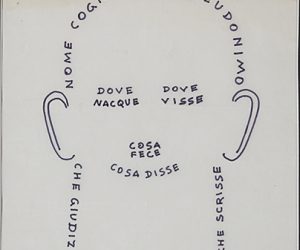 NOME COG
UDONIMO
DOVE NACQUE
DOVE VISSE
COSA FECE
COSA DISSE
CHE GIUDIZ
CHE SCRISSE